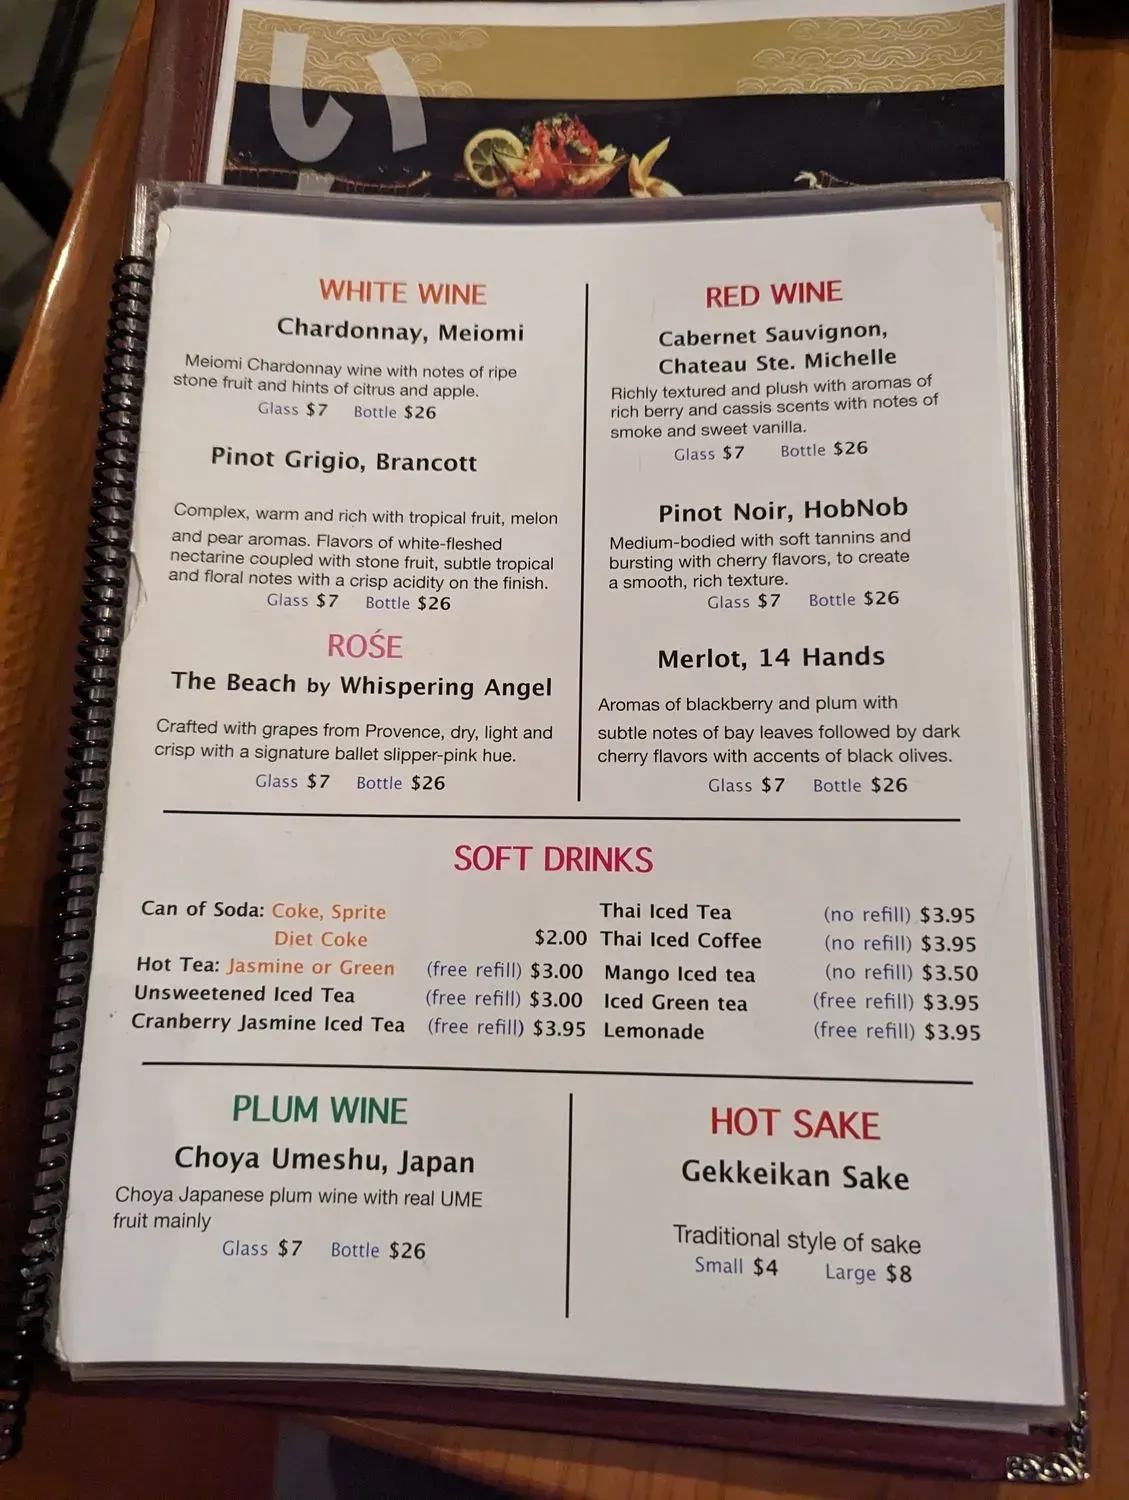 い
WHITE WINE
Chardonnay, Meiomi
Meiomi Chardonnay wine with notes of ripe
stone fruit and hints of citrus and apple.
Glass $7 Bottle $26
Pinot Grigio, Brancott
Complex, warm and rich with tropical fruit, melon
and pear aromas. Flavors of white-fleshed
nectarine coupled with stone fruit, subtle tropical
and floral notes with a crisp acidity on the finish.
Glass $7 Bottle $26
ROŚE
The Beach by Whispering Angel
Crafted with grapes from Provence, dry, light and
crisp with a signature ballet slipper-pink hue.
Glass $7 Bottle $26
RED WINE
Cabernet Sauvignon,
Chateau Ste. Michelle
Richly textured and plush with aromas of
rich berry and cassis scents with notes of
smoke and sweet vanilla.
Glass $7 Bottle $26
Pinot Noir, HobNob
Medium-bodied with soft tannins and
bursting with cherry flavors, to create
a smooth, rich texture.
Glass $7 Bottle $26
Merlot, 14 Hands
Aromas of blackberry and plum with
subtle notes of bay leaves followed by dark
cherry flavors with accents of black olives.
Glass $7 Bottle $26
SOFT DRINKS
Can of Soda: Coke, Sprite
Diet Coke $2.00
Hot Tea: Jasmine or Green (free refill) $3.00
Unsweetened Iced Tea (free refill) $3.00
Cranberry Jasmine Iced Tea (free refill) $3.95
Thai Iced Tea (no refill) $3.95
Thai Iced Coffee (no refill) $3.95
Mango Iced tea (no refill) $3.50
Iced Green tea (free refill) $3.95
Lemonade (free refill) $3.95
PLUM WINE
Choya Umeshu, Japan
Choya Japanese plum wine with real UME
fruit mainly
Glass $7 Bottle $26
HOT SAKE
Gekkeikan Sake
Traditional style of sake
Small $4 Large $8